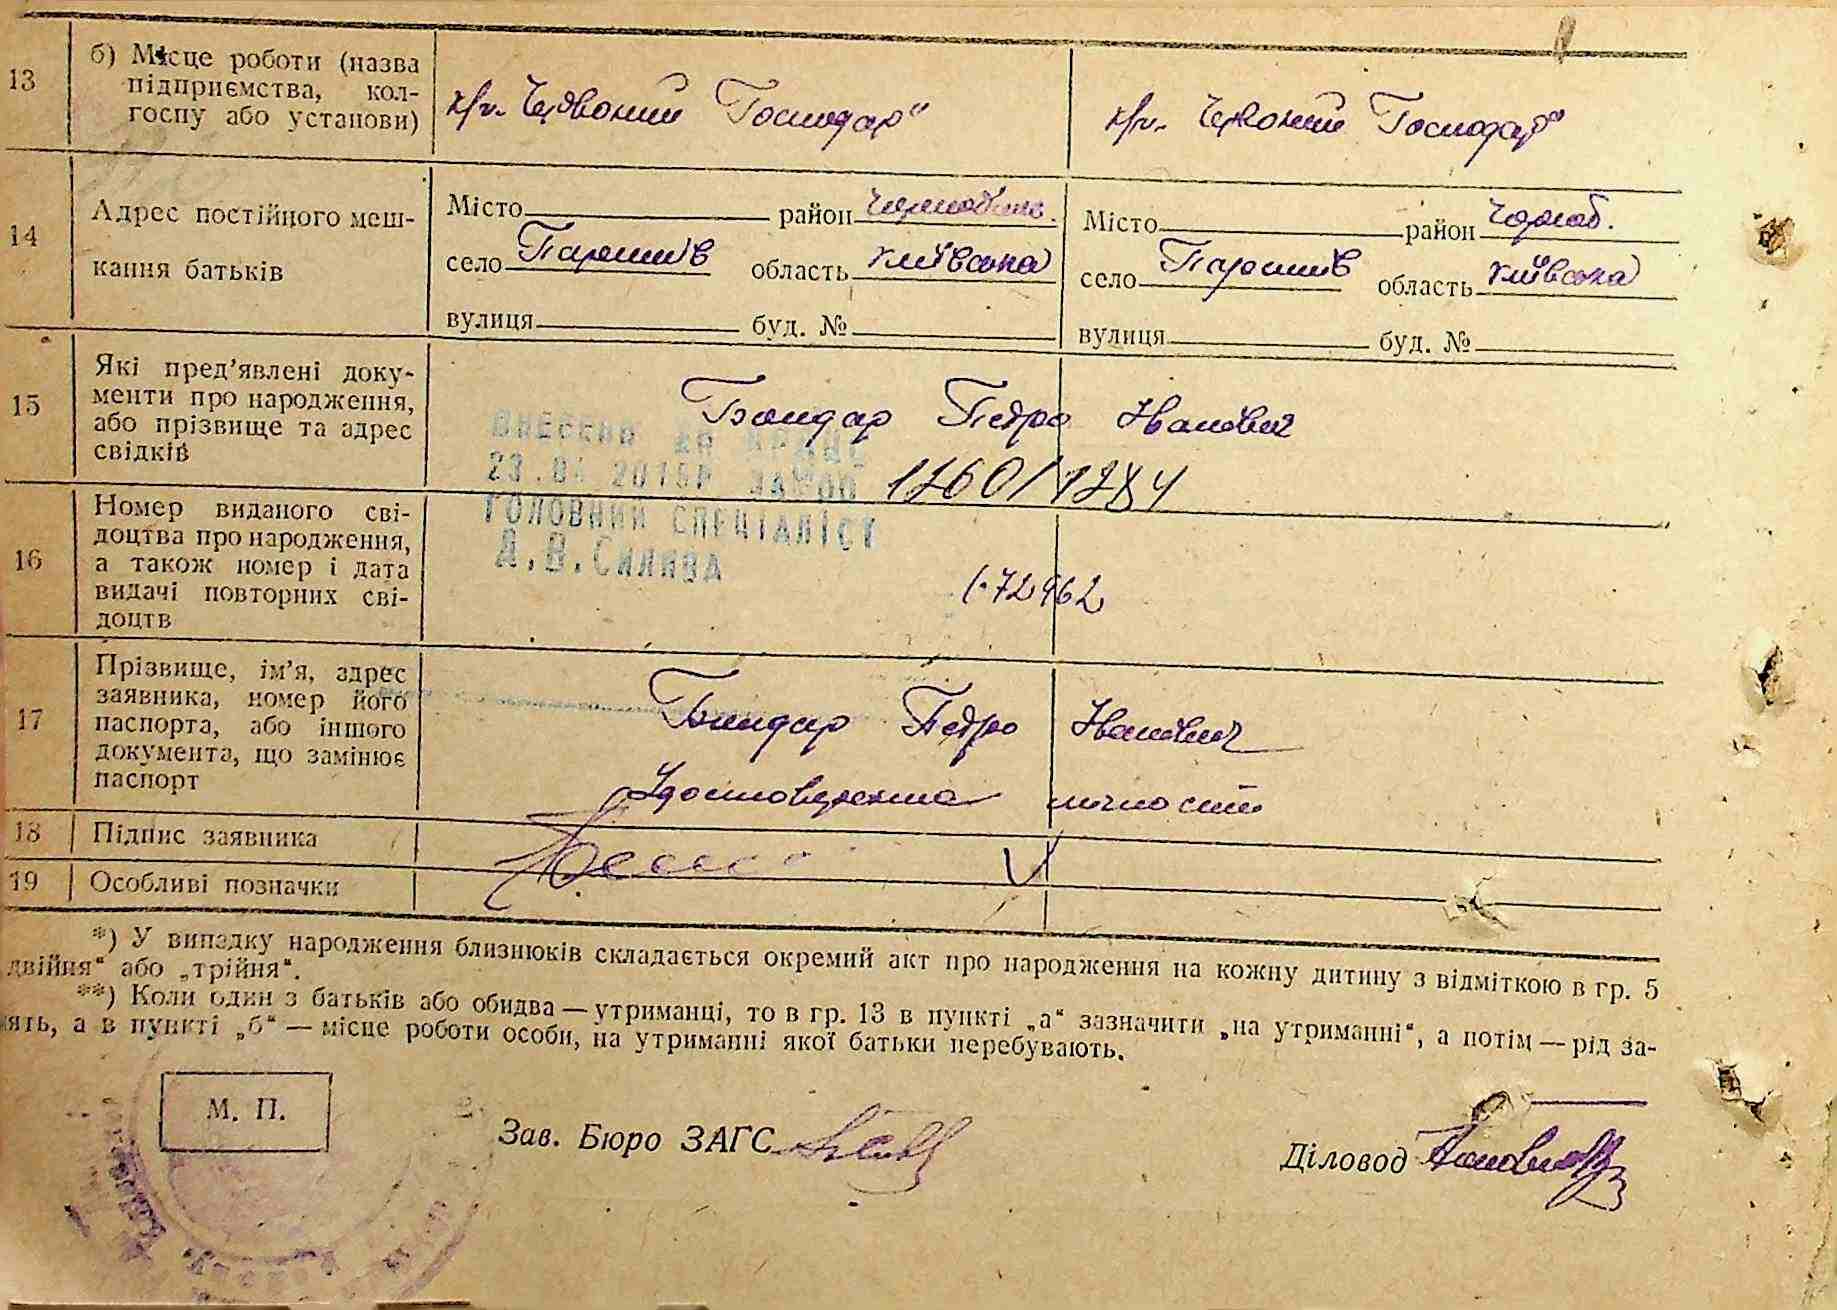 13
б) Місце роботи (назва
підприємства, кол-
госпу або установи)
к/г. Червоний Господар"
к/г. Червоний Господар"
14
Адрес постійного меш-
кання батьків
Місто район Чорнобил.
село Паришів область Київська
вулиця буд. №
Місто район Чорноб.
село Паришів область Київська
вулиця буд. №
15
Які пред'явлені доку-
менти про народження,
або прізвище та адрес
свідків
Бондар Петро Іванович
1260/1284
ВНЕСЕНИ ДО ДРАЦС
ГОЛОВНИЙ СПЕЦІАЛІСТ
16
Номер виданого сві-
доцтва про народження,
а також номер і дата
видачі повторних сві-
доцтв
72962
17
Прізвище, ім'я, адрес
заявника, номер його
паспорта, або іншого
документа, що замінює
паспорт
Бондар Петро Іванович
Удостоверения личности
18
Підпис заявника
19
Особливі позначки
*) У випадку народження близнюків складається окремий акт про народження на кожну дитину з відміткою в гр. 5
двійня“ або „трійня“.
**) Коли один з батьків або обидва — утриманці, то в гр. 13 в пункті „а“ зазначити „на утриманні“, а потім — рід за-
нять, а в пункті „б“ — місце роботи особи, на утриманні якої батьки перебувають.
М. П.
Зав. Бюро ЗАГС
Діловод